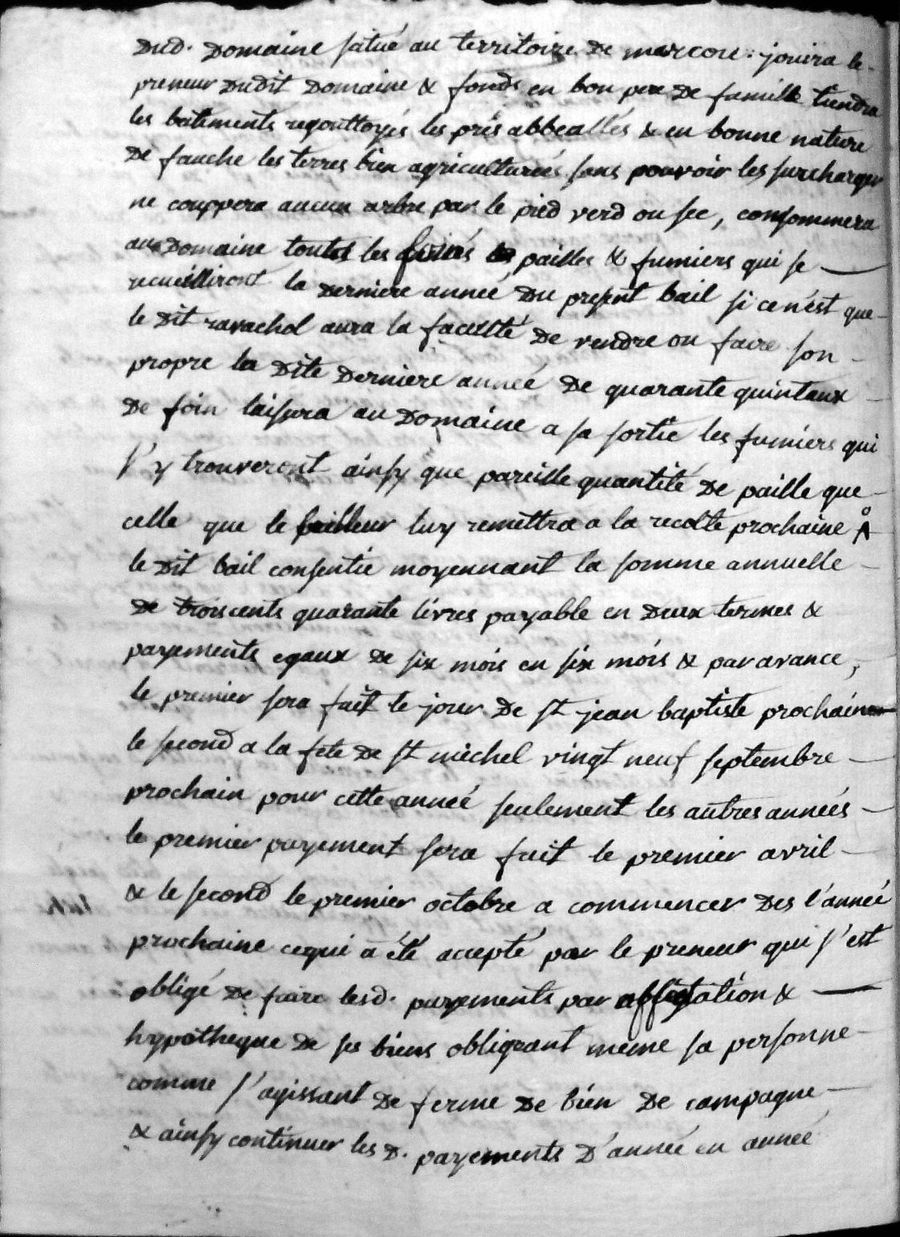 dud. domaine situé au territoire de marcou : jouira le
preneur dudit domaine & fonds en bon pere de famille tiendra
les batiments regouttoyés les prés abbeallés & en bonne nature
de fauche les terres bien agriculturées sans pouvoir les surcharger
ne couppera aucun arbre par le pied verd ou sec, consommera
au domaine toutes les pailles & fumiers qui se
recueilliront la derniere année du present bail si ce n'est que
le dit ravachol aura la faculté de vendre ou faire son
propre la dite derniere année de quarante quintaux
de foin laissera au domaine a sa sortie les fumiers qui
s'y trouveront ainsy que pareille quantité de paille que
celle que le bailleur luy remettra a la recolte prochaine
le dit bail consentie moyennant la somme annuelle
de troiscents quarante livres payable en deux termes &
payements egaux de six mois en six mois & par avance,
le premier sera fait le jour de st jean baptiste prochain
le second a la fete de st michel vingt neuf septembre
prochain pour cette année seulement les autres années
le premier payement sera fait le premier avril
& le second le premier octobre a commencer des l'année
prochaine ce qui a été accepté par le preneur qui s'est
obligé de faire lesd. payements par affectation &
hypotheque de ses biens obligeant meme sa personne
comme s'agissant de ferme de bien de campagne
& ainsy continuer les d. payements d'année en année